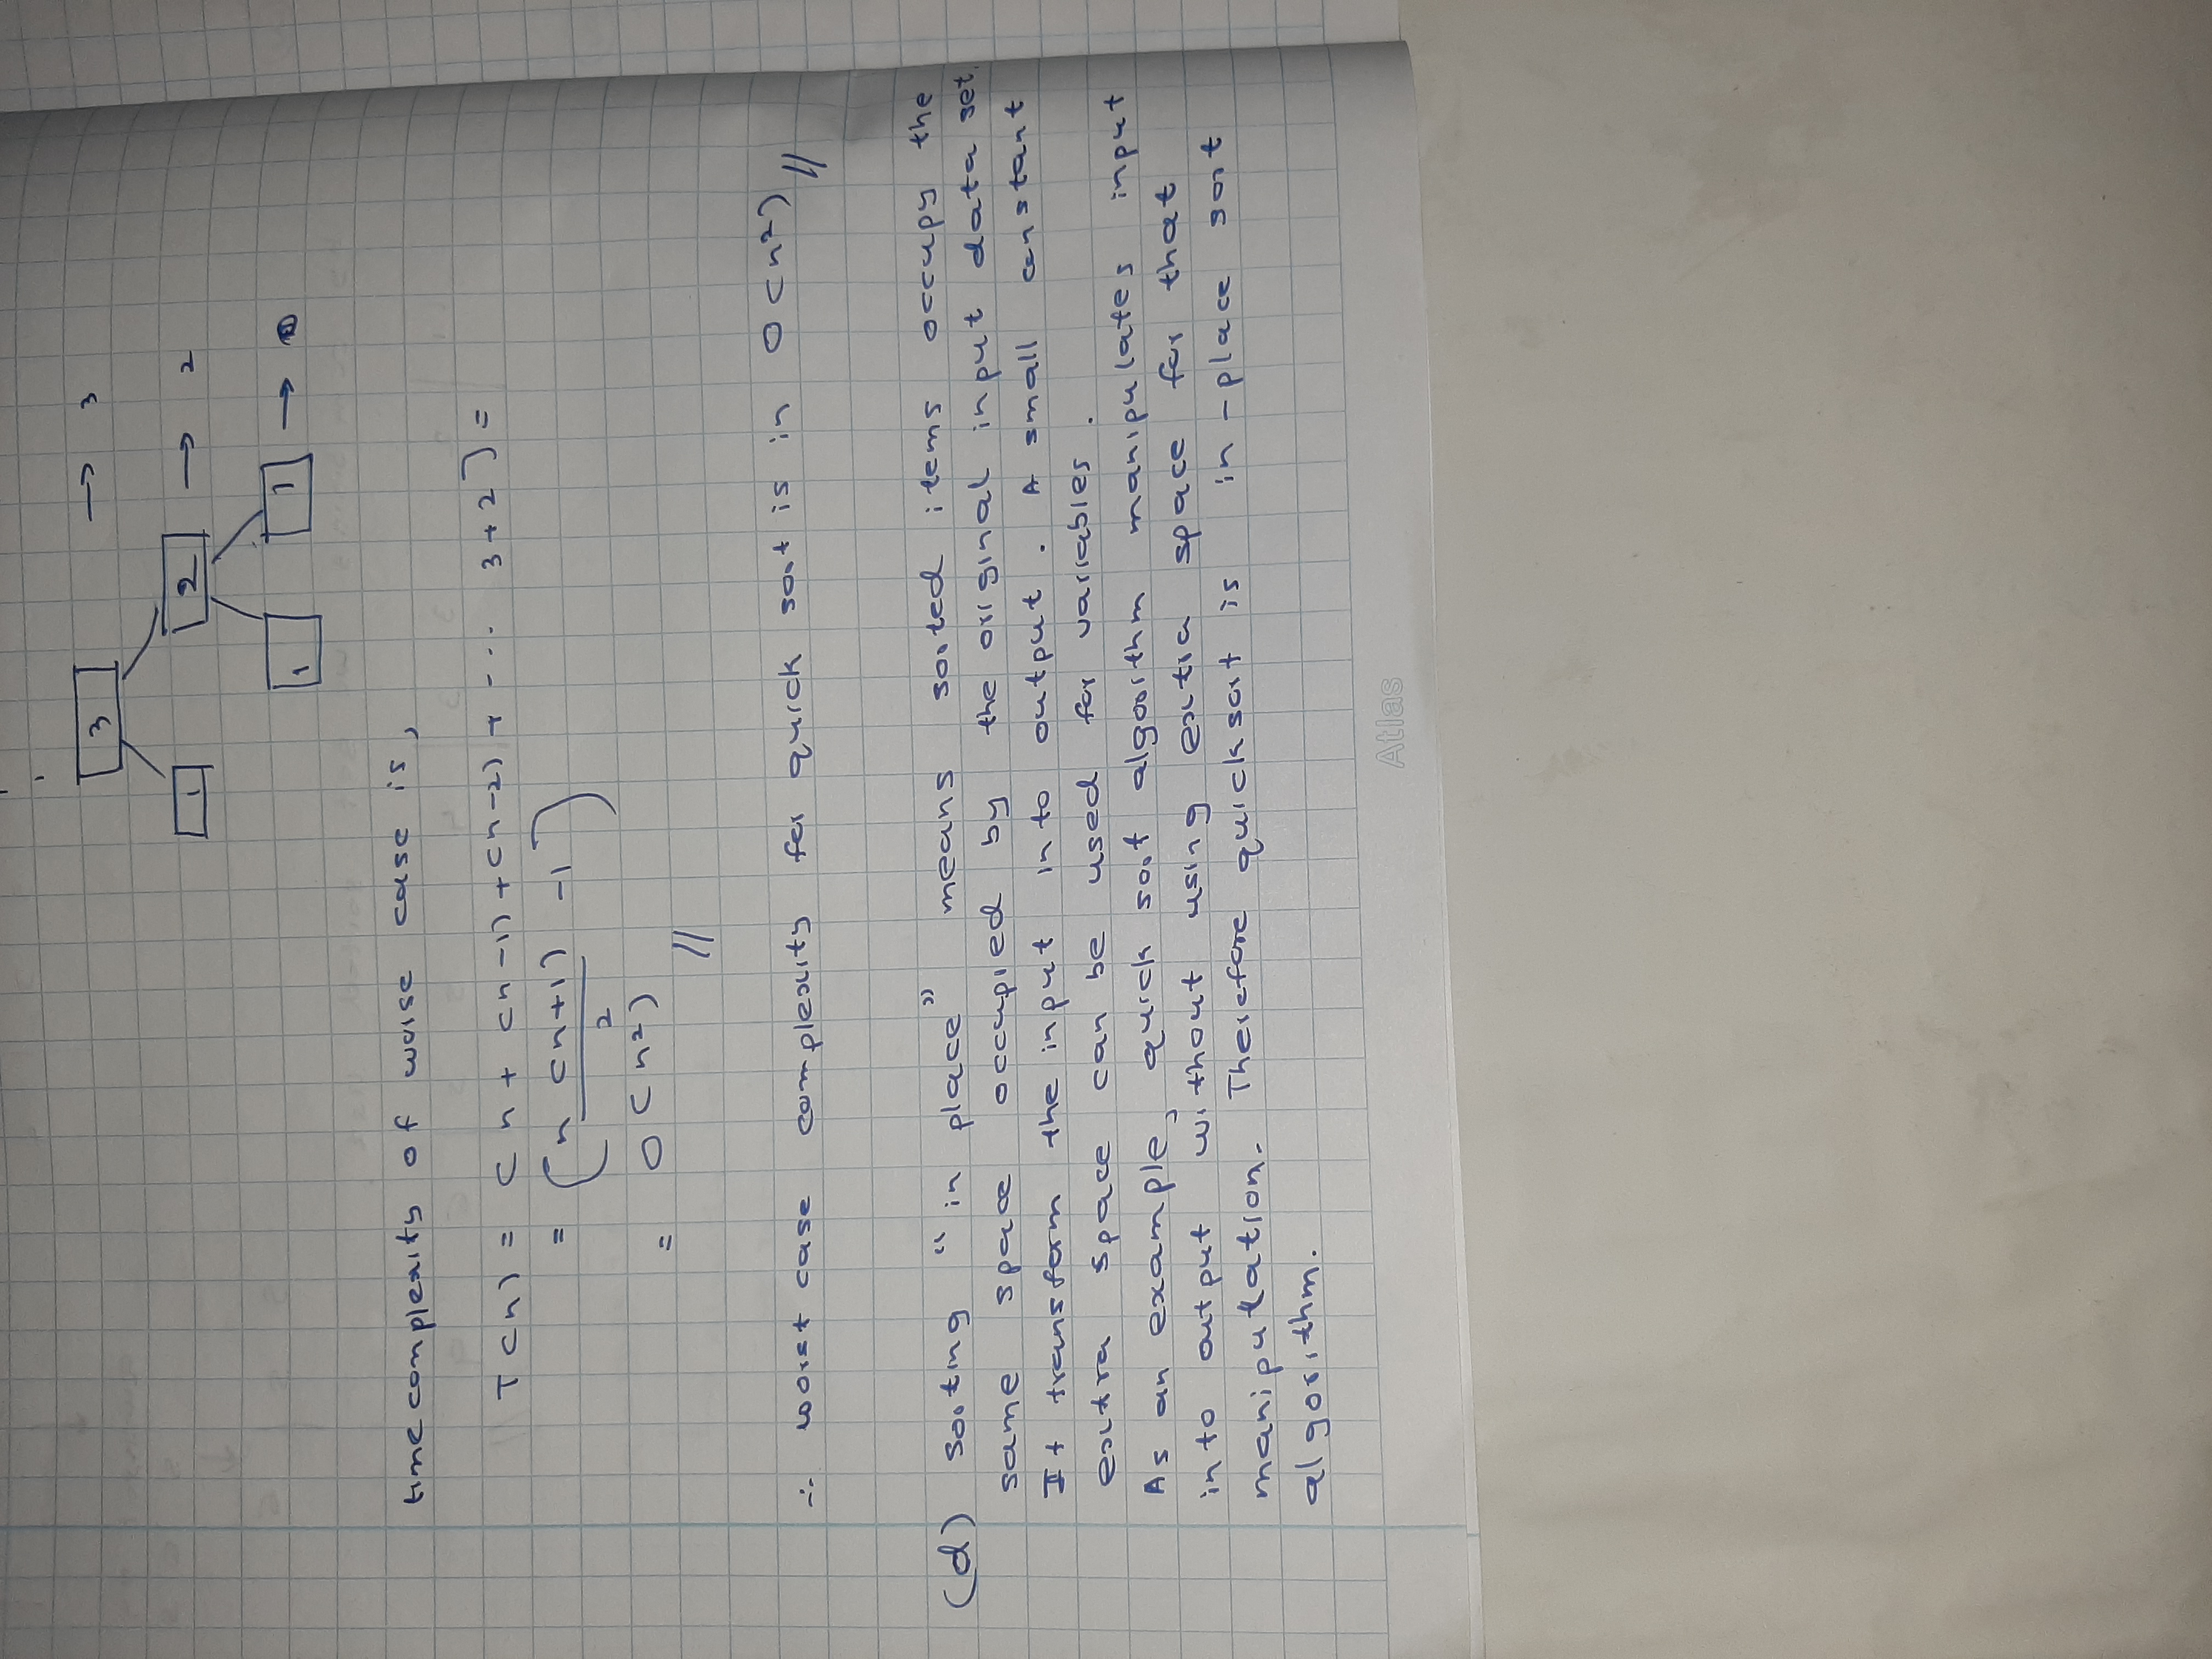 3 → 3
1 2 → 2
1 1 →
time complexity of worse case is,
T(n) = ( n + (n-1) + (n-2) + --- 3+2 ] =
= ( n (n+1) -1 )
2
= O(n²)
//
∴ worst case complexity for quick sort is in O(n²) //
(d) sorting "in place" means sorted items occupy the
same space occupied by the original input data set.
It transform the input in to output. A small constant
extra space can be used for variables.
As an example, quick sort algoorithm manipulates input
in to output without using extra space for that
manipulation. Therefore quick sort is in-place sort
algorithm.
Atlas